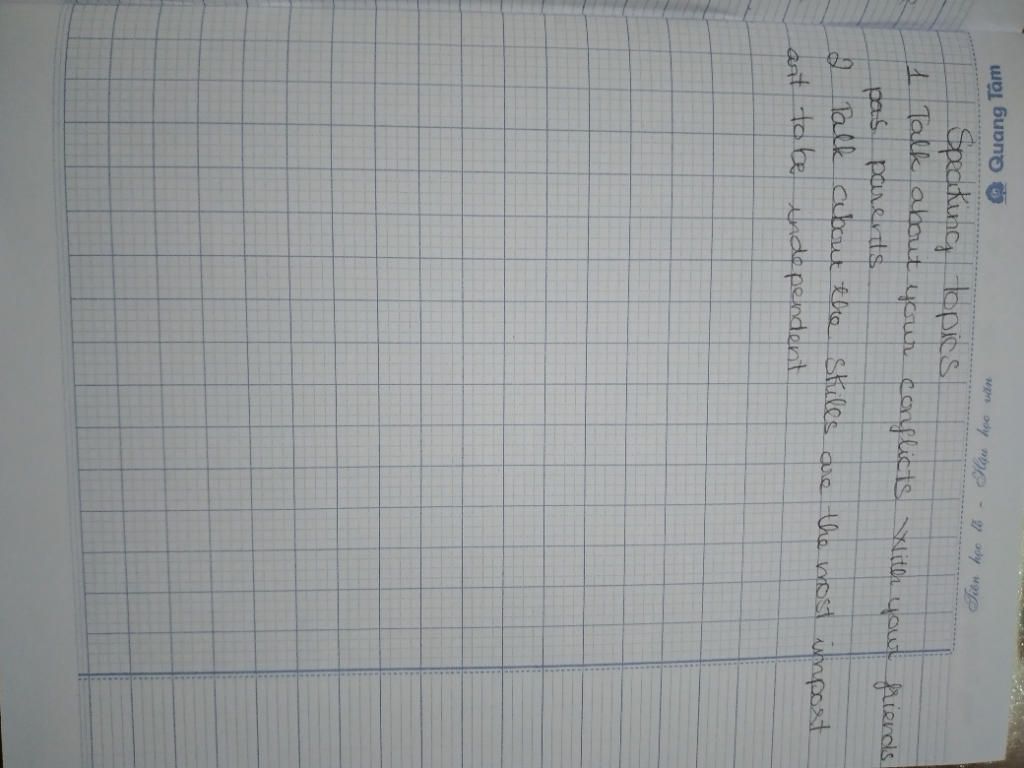 Quang Tám
Tiên học lễ - Hậu học văn
Speaking topics
1 Talk about your conflicts with your friends
parents
2 Talk about the skilles are the most impost
ant to be independent